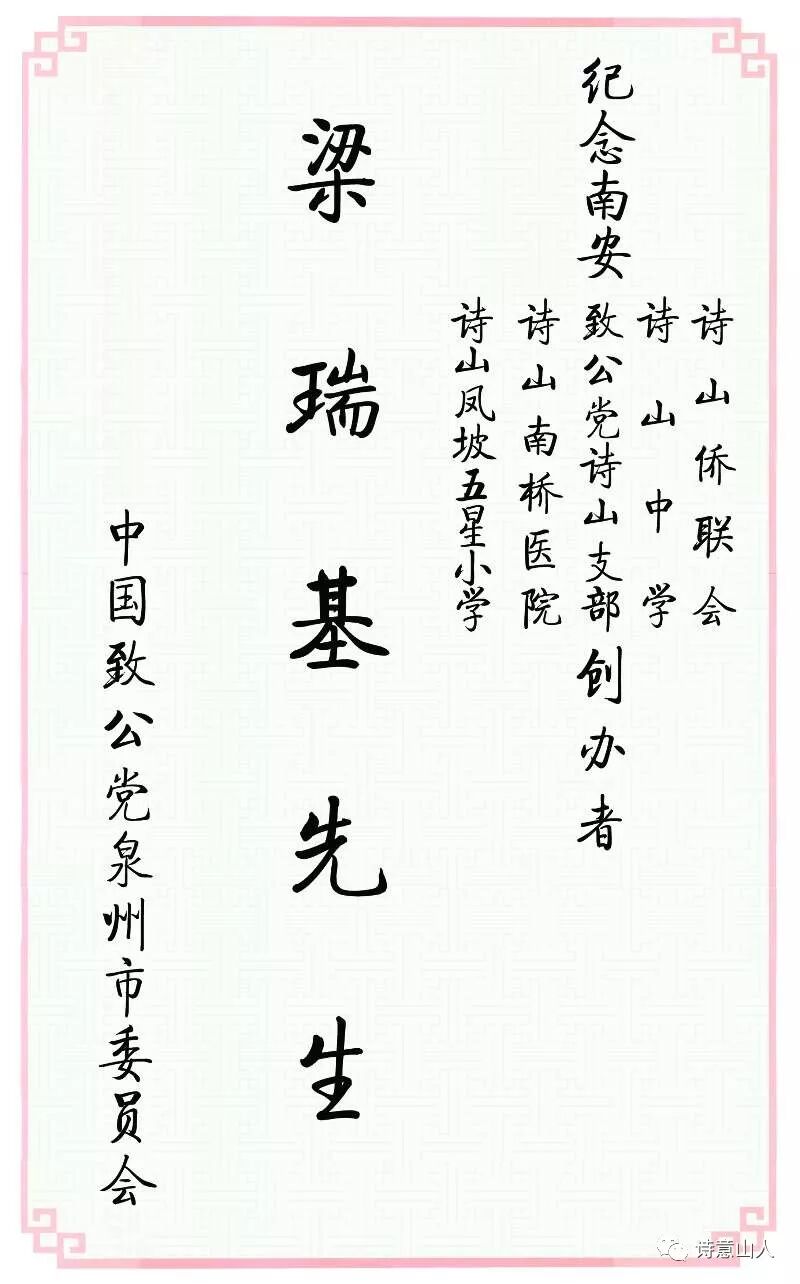 纪念南安
诗山侨联会
诗山中学
致公党诗山支部
诗山南桥医院
诗山凤坡五星小学
创办者
梁瑞基先生
中国致公党泉州市委员会
诗意山人